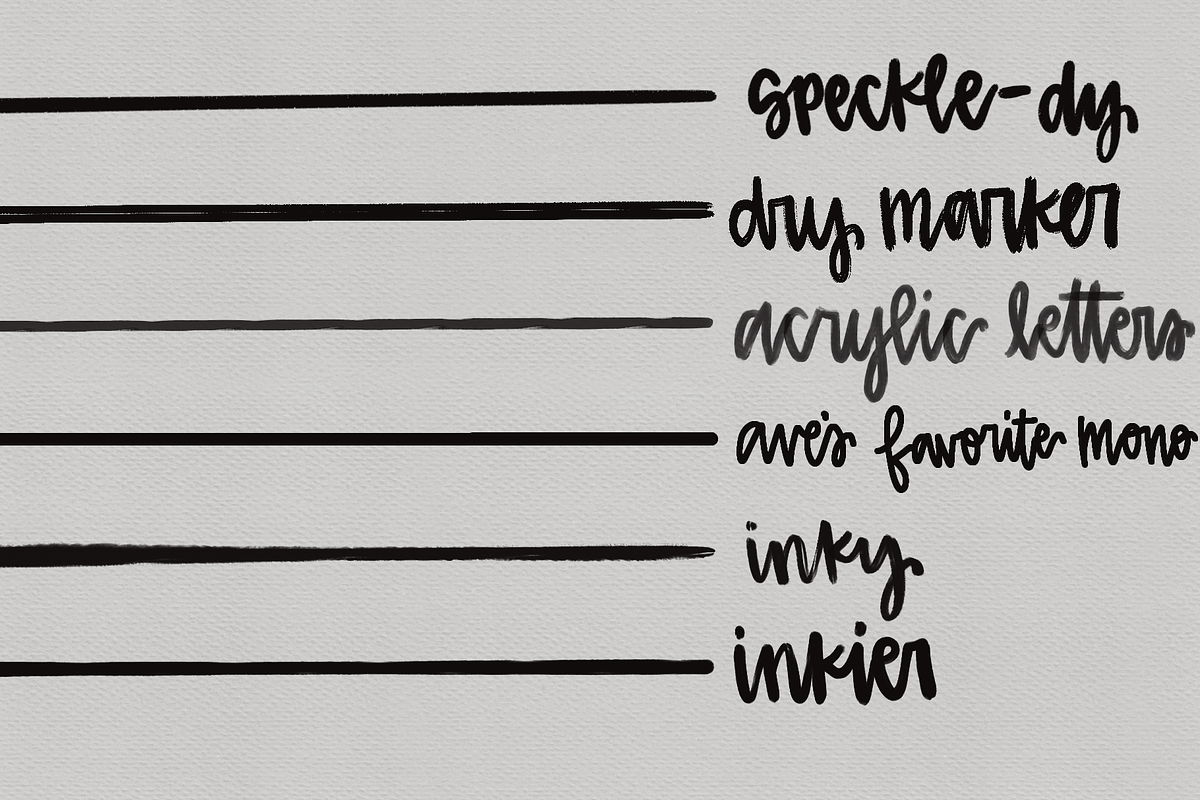 speckle-dy
dry marker
acrylic letters
ave's favorite mono
inky
inkier